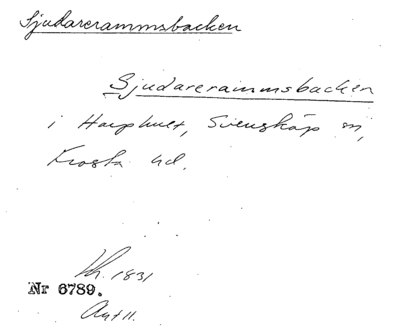 Sjudarerammsbacken
Sjudarerammsbacken
i Harphult, Svensköp sn,
Frosta hd.
Kh. 1831
Nr 6789.
Avt 11.